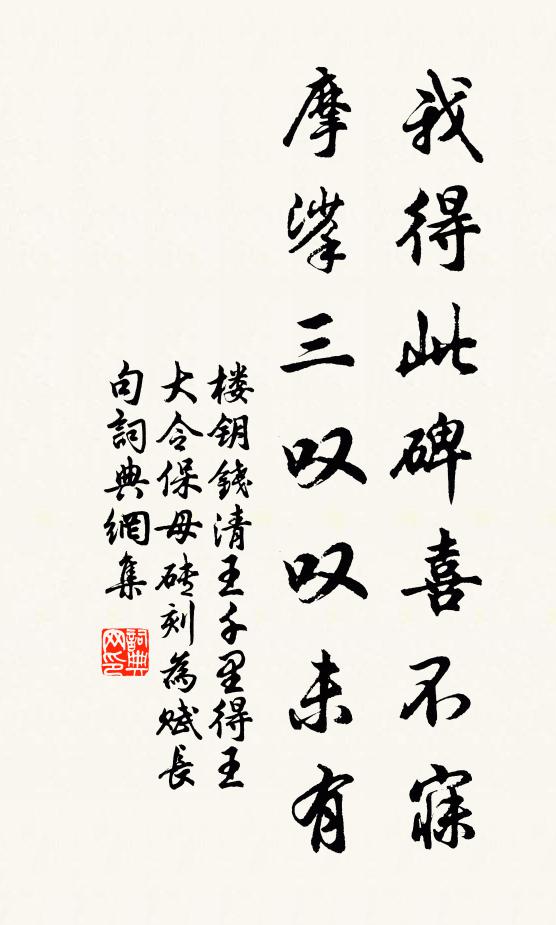 我得此碑喜不寐
摩挲三叹叹未有
楼钥钱清王千里得王
大令保母砖刻为赋长
句词典网集
词典网印